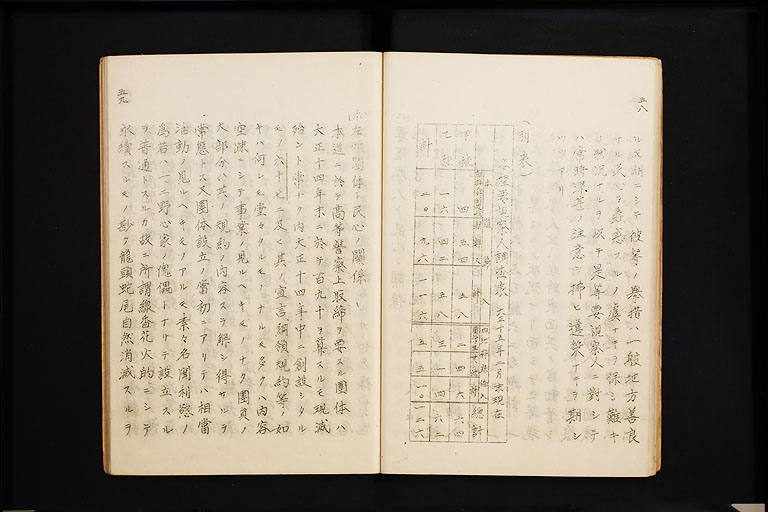 五八
ル文明ニシテ彼等ノ挙措ハ一般地方善良
ナル民心ヲ蠱惑スルノ虞ナキヲ保シ難キ
状況ナルヲ以テ是等要視察人ニ対シテ
ハ常時深甚ノ注意ヲ拂ヒ違策ナキヲ期シ
ツツアリ
(別表)
之種要視察人調査表 大正十五年二月末現在
甲種 四 五四 五八 二 四 六 六四
乙種 一六 四二 五八 三 一 四 六二
計 二〇 九六 一一六 五 五 一〇 一二六
総計
五九
左傾団体ト民心ノ関係
本道ニ於テ高等警察上取締ヲ要スル團体ハ
大正十四年末ニ於テ百九十ヲ算スルモ現減
殆ント常ナク内大正十四年中ニ創設シタル
モノ六十七ニ及ヘ其ノ宣言、綱領規約等ノ如
キハ何レモ堂々タルモノナルモ多クハ内容
空疎ニシテ事業ノ見ルヘキモノナク團員ノ
大部分ハ其ノ規約ノ内容スラ解シ得サルヲ
常態トス又團体設立ノ當初ニアリテハ相當
活動ノ見ルヘキモノアルモ素々名聞利慾ノ
為若ハ一二野心家ノ傀儡トナリテ設立スル
ヲ普通トスルカ故ニ所謂線香花火的ニシテ
永續スルモノ尠ク龍頭蛇尾自然消滅スルヲ